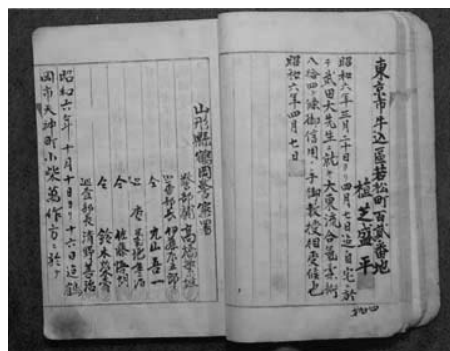 東京市牛込區若松町百貳番地
植芝盛平
昭和六年三月二十日ヨリ四月七日迄自宅ニ於
テ武田大先生ニ就キ大東流合氣柔術
八拾四ヶ條御信用ノ手御教授相受候也
昭和六年四月七日
山形縣鶴岡警察署
警部補 高橋
巡査部長 伊藤
仝 丸山吾一
巡査 菊地
仝 佐藤
仝 鈴木
巡査部長 清野
昭和六年十月十日ヨリ十六日迄鶴
岡市天神町小柴萬作方ニ於テ